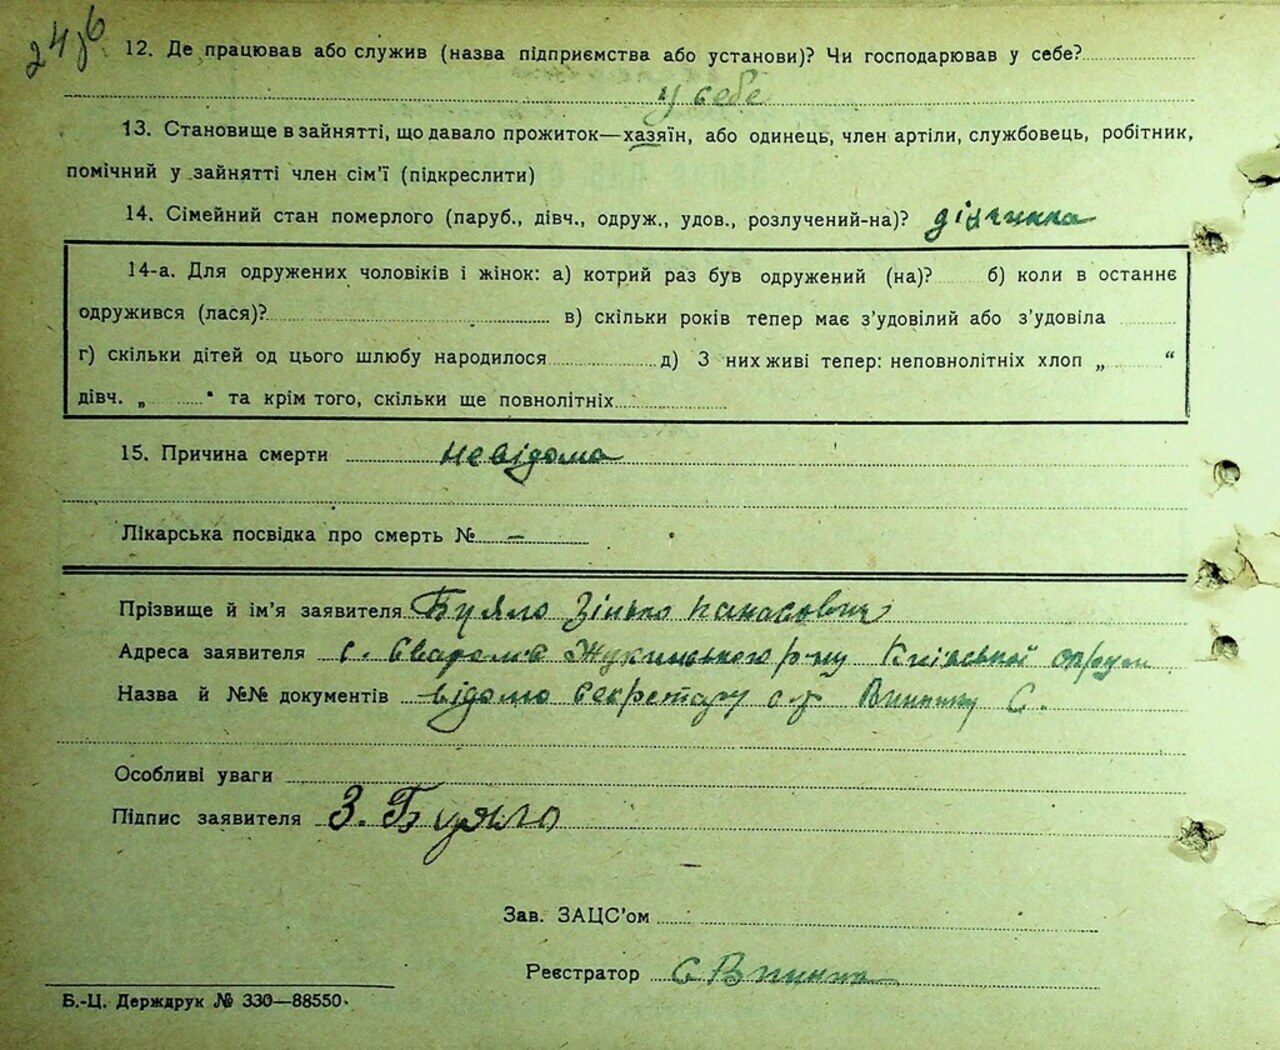 24 б
12. Де працював або служив (назва підприємства або установи)? Чи господарював у себе?
у себе
13. Становище в зайнятті, що давало прожиток—хазяїн, або одинець, член артіли, службовець, робітник,
помічний у зайнятті член сім'ї (підкреслити)
14. Сімейний стан померлого (паруб., дівч., одруж., удов., розлучений-на)? дівчинка
14-а. Для одружених чоловіків і жінок: а) котрий раз був одружений (на)? б) коли в останнє
одружився (лася)? в) скільки років тепер має з'удовілий або з'удовіла
г) скільки дітей од цього шлюбу народилося д) З них живі тепер: неповнолітніх хлоп „ “
дівч. „ “ та крім того, скільки ще повнолітніх
15. Причина смерти невідома
Лікарська посвідка про смерть № —
Прізвище й ім'я заявителя Буяло Зінько Панасович
Адреса заявителя с. Сваром'є Жукинського р-ну Київської округи
Назва й №№ документів відомо секретару с/р
Особливі уваги
Підпис заявителя З. Буяло
Зав. ЗАЦС'ом
Реєстратор С
Б.-Ц. Держдрук № 330—88550.